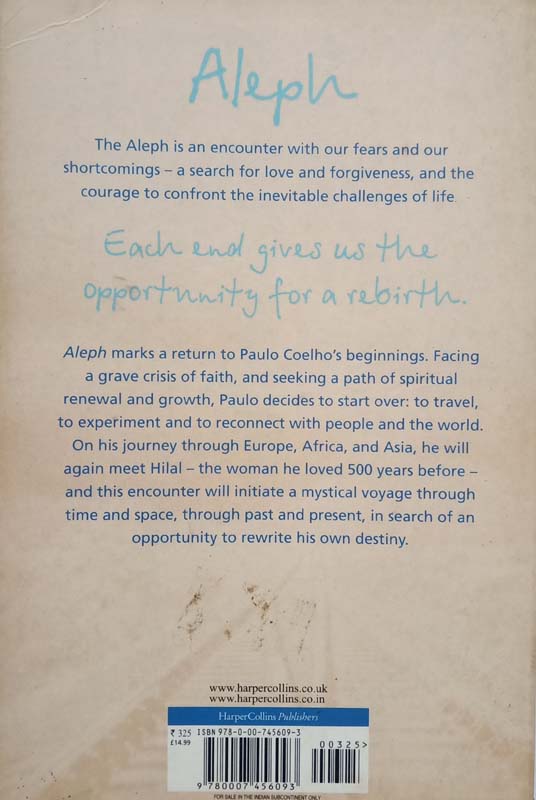 Aleph
The Aleph is an encounter with our fears and our
shortcomings – a search for love and forgiveness, and the
courage to confront the inevitable challenges of life.
Each end gives us the
opportunity for a rebirth.
Aleph marks a return to Paulo Coelho's beginnings. Facing
a grave crisis of faith, and seeking a path of spiritual
renewal and growth, Paulo decides to start over: to travel,
to experiment and to reconnect with people and the world.
On his journey through Europe, Africa, and Asia, he will
again meet Hilal – the woman he loved 500 years before –
and this encounter will initiate a mystical voyage through
time and space, through past and present, in search of an
opportunity to rewrite his own destiny.
www.harpercollins.co.uk
www.harpercollins.co.in
HarperCollins Publishers
₹ 325 ISBN 978-0-00-745609-3
£14.99
00325>
9 780007 456093
FOR SALE IN THE INDIAN SUBCONTINENT ONLY